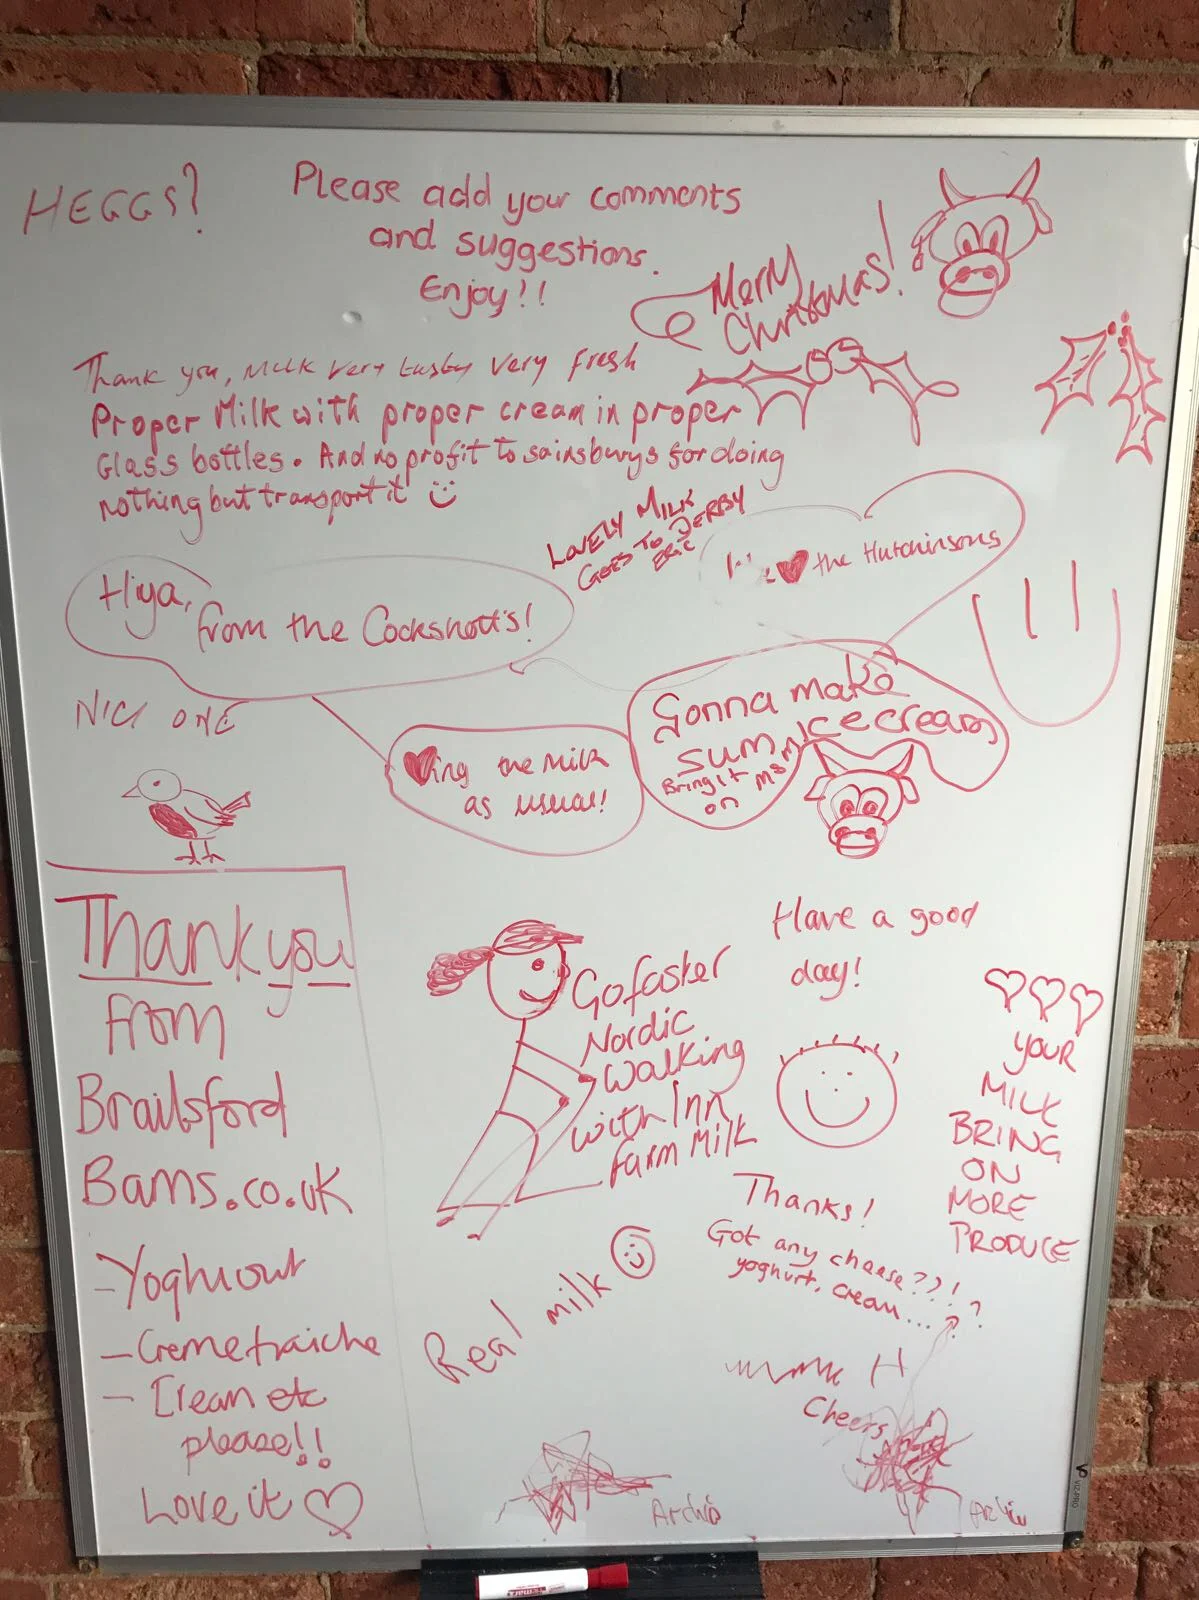 HEGGS?
Please add your comments
and suggestions.
Enjoy!!
Merry
Christmas!
Thank you, Milk very tasty very fresh
Proper Milk with proper cream in proper
Glass bottles. And no profit to sainsburys for doing
nothing but transport it
LOVELY MILK
GOES TO DERBY
ERIC
the Hutchinsons
Hiya,
from the Cockshott's!
NICE ONE
ing the milk
as usual!
Gonna make
sum ice cream
Bring it
on
Thank you
from
Brailsford
Bams.co.uk
- Yoghourt
- Creme fraiche
- Cream etc
please!!
Love it
Gofaster
Nordic
Walking
with Inn
farm Milk
Have a good
day!
YOUR
MILK
BRING
ON
MORE
PRODUCE
Thanks!
Got any cheese??!
yoghurt, cream...??
Real milk
H
Cheers
Archie
Archie
VIZ-PRO